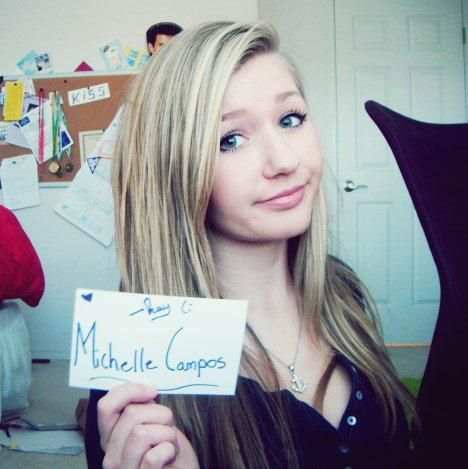 KiSS
Michelle Campos